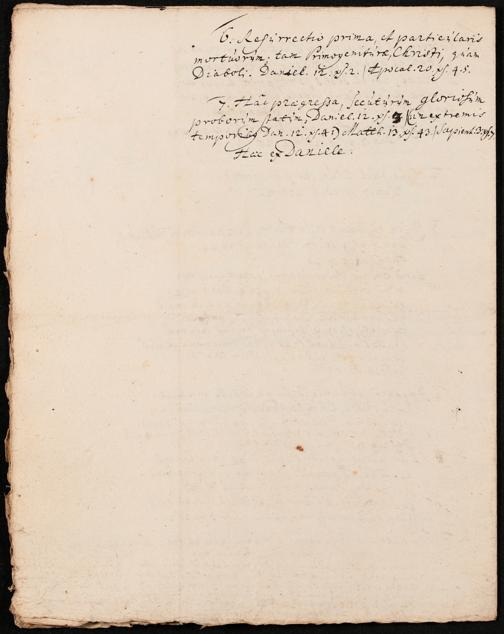 6. Resurrectio prima, et particularis
mortuorum, tam Primogenituræ, Christi, quam
Diaboli. Daniel. 12. ps. 2. Apocal. 20. ps. 4.5.
7. Hac prægressa, secuturum gloriosum
proborum statum, Daniel. 12. ps. 3 extremis
Dan. 12. ps. 4.) Matth. 13. ps. 43. Sapient. 3.
Hæc ex Daniele.